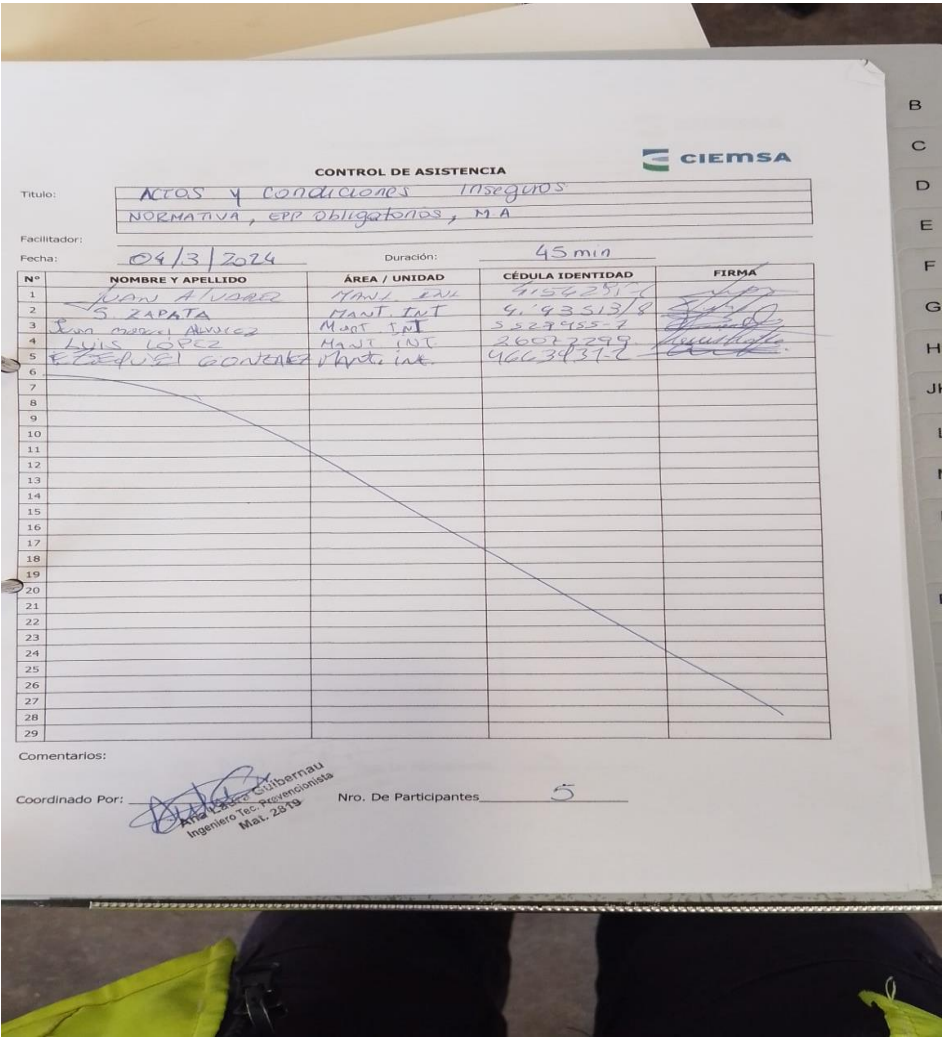 CIEMSA
CONTROL DE ASISTENCIA
Titulo: Actos y Condiciones Inseguros
NORMATIVA, EPP Obligatorios, M.A
Facilitador:
Fecha: 04/3/2024 Duración: 45 min
Nº NOMBRE Y APELLIDO ÁREA / UNIDAD CÉDULA IDENTIDAD FIRMA
1 JUAN ALVAREZ MANT. INT
2 S. ZAPATA MANT. INT
3 Alvarez MANT INT
4 LUIS LÓPEZ MANT. INT.
5 EZEQUIEL GONZALEZ Mant. int.
6
7
8
9
10
11
12
13
14
15
16
17
18
19
20
21
22
23
24
25
26
27
28
29
Comentarios:
Coordinado Por: Ana Laura Guibernau
Ingeniero Tec. Prevencionista
Mat. 2819
Nro. De Participantes 5
B
C
D
E
F
G
H